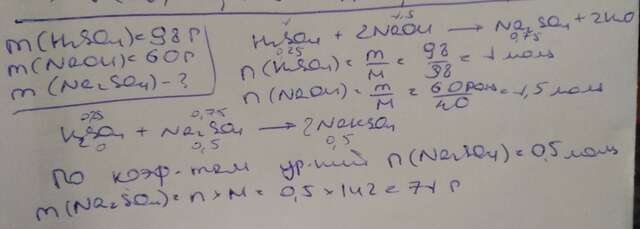 m(H₂SO₄)=98 г
m(NaOH)=60 г
m(Na₂SO₄)-?
1 1,5
H₂SO₄ + 2NaOH → Na₂SO₄ + 2H₂O
0,25 0,75
n(H₂SO₄) = m/M = 98/98 = 1 моль
n(NaOH) = m/M = 60/40 = 1,5 моль
0,25 0,75
H₂SO₄ + Na₂SO₄ → 2NaHSO₄
0 0,5 0,5
По коэф-там ур-ний n(Na₂SO₄) = 0,5 моль
m(Na₂SO₄) = n × M = 0,5 × 142 = 71 г